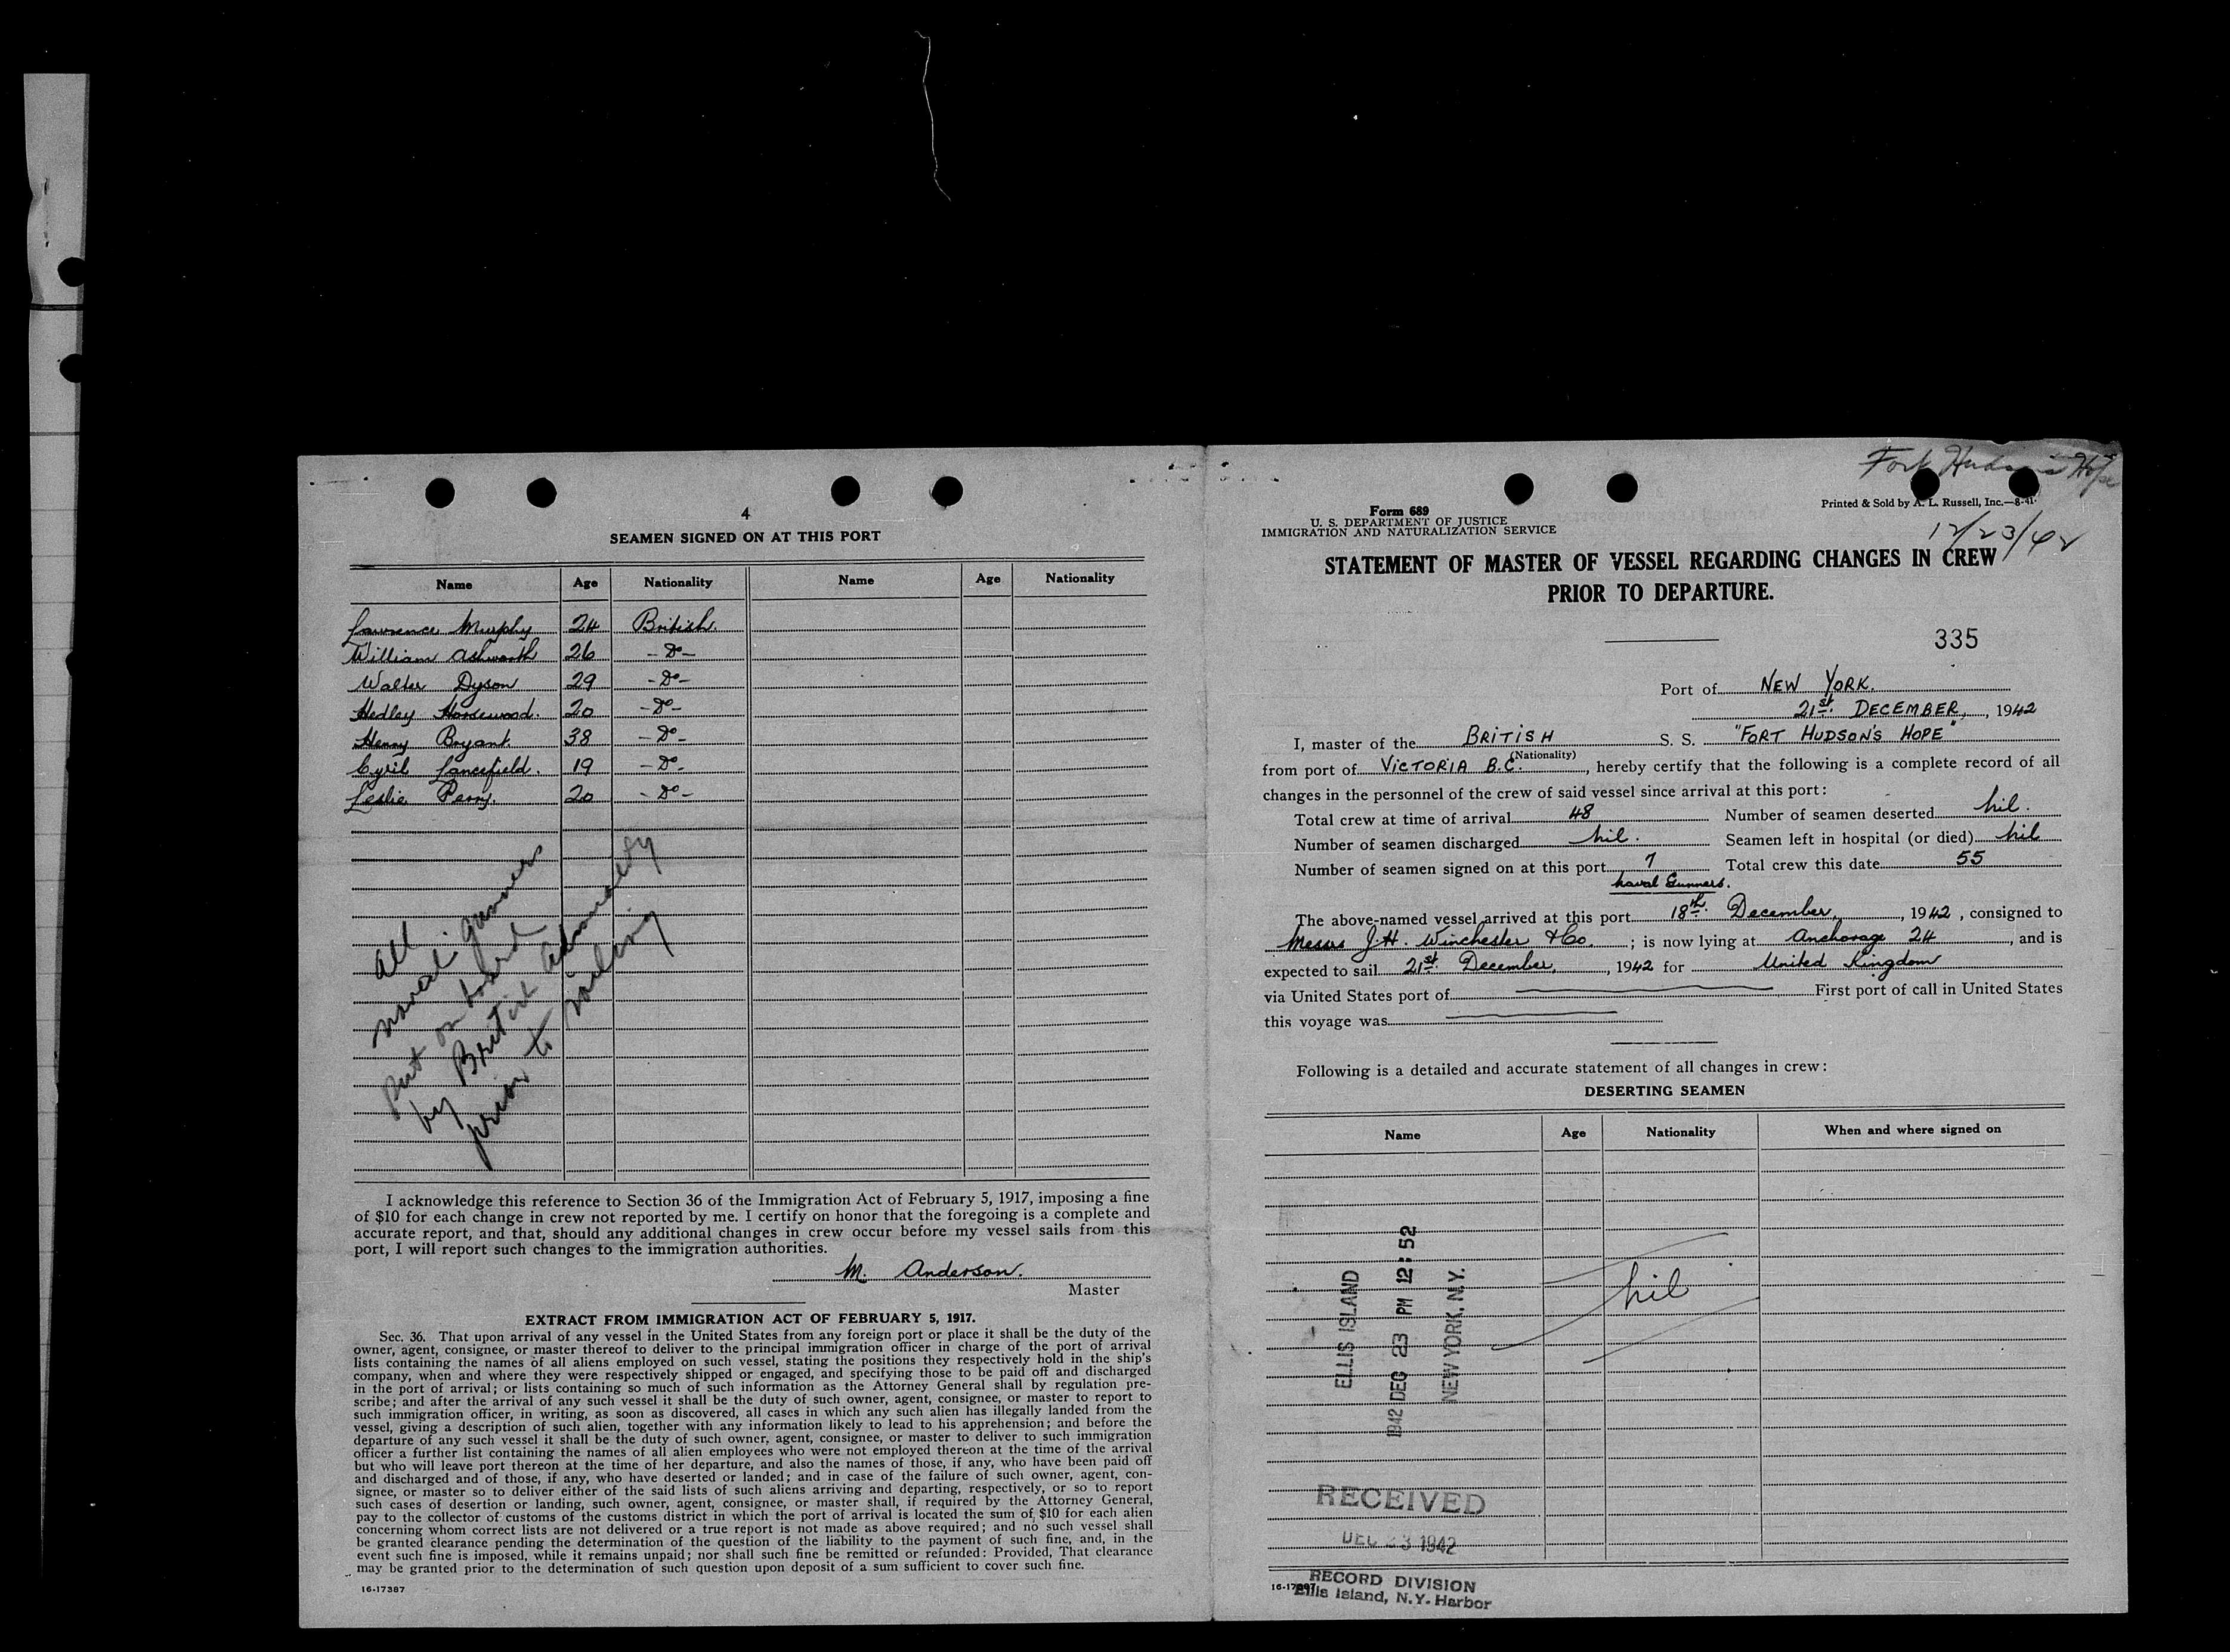 4
SEAMEN SIGNED ON AT THIS PORT
Name Age Nationality Name Age Nationality
Lawrence Murphy 24 British.
William Ashworth 26 -Do-
Walter Dyson 29 -Do-
Hedley Horsewood. 20 -Do-
Henry Bryant. 38 -Do-
Cyril Lancefield. 19 -Do-
Leslie Perry. 20 -Do-
all
naval gunners
put on board
by British Admiralty
prior to sailing
I acknowledge this reference to Section 36 of the Immigration Act of February 5, 1917, imposing a fine
of $10 for each change in crew not reported by me. I certify on honor that the foregoing is a complete and
accurate report, and that, should any additional changes in crew occur before my vessel sails from this
port, I will report such changes to the immigration authorities.
M. Anderson.
Master
EXTRACT FROM IMMIGRATION ACT OF FEBRUARY 5, 1917.
Sec. 36. That upon arrival of any vessel in the United States from any foreign port or place it shall be the duty of the
owner, agent, consignee, or master thereof to deliver to the principal immigration officer in charge of the port of arrival
lists containing the names of all aliens employed on such vessel, stating the positions they respectively hold in the ship's
company, when and where they were respectively shipped or engaged, and specifying those to be paid off and discharged
in the port of arrival; or lists containing so much of such information as the Attorney General shall by regulation pre-
scribe; and after the arrival of any such vessel it shall be the duty of such owner, agent, consignee, or master to report to
such immigration officer, in writing, as soon as discovered, all cases in which any such alien has illegally landed from the
vessel, giving a description of such alien, together with any information likely to lead to his apprehension; and before the
departure of any such vessel it shall be the duty of such owner, agent, consignee, or master to deliver to such immigration
officer a further list containing the names of all alien employees who were not employed thereon at the time of the arrival
but who will leave port thereon at the time of her departure, and also the names of those, if any, who have been paid off
and discharged and of those, if any, who have deserted or landed; and in case of the failure of such owner, agent, con-
signee, or master so to deliver either of the said lists of such aliens arriving and departing, respectively, or so to report
such cases of desertion or landing, such owner, agent, consignee, or master shall, if required by the Attorney General,
pay to the collector of customs of the customs district in which the port of arrival is located the sum of $10 for each alien
concerning whom correct lists are not delivered or a true report is not made as above required; and no such vessel shall
be granted clearance pending the determination of the question of the liability to the payment of such fine, and, in the
event such fine is imposed, while it remains unpaid; nor shall such fine be remitted or refunded: Provided, That clearance
may be granted prior to the determination of such question upon deposit of a sum sufficient to cover such fine.
16-17387
Fort Hudson's Hope
Printed & Sold by A. L. Russell, Inc.—8-41
12/23/42
Form 689
U. S. DEPARTMENT OF JUSTICE
IMMIGRATION AND NATURALIZATION SERVICE
STATEMENT OF MASTER OF VESSEL REGARDING CHANGES IN CREW
PRIOR TO DEPARTURE.
335
Port of NEW YORK.
21st. DECEMBER, , 1942
I, master of the BRITISH S. S. "FORT HUDSON'S HOPE"
(Nationality)
from port of VICTORIA B.C. , hereby certify that the following is a complete record of all
changes in the personnel of the crew of said vessel since arrival at this port:
Total crew at time of arrival 48 Number of seamen deserted nil.
Number of seamen discharged nil. Seamen left in hospital (or died) nil
Number of seamen signed on at this port 7 Total crew this date 55
Naval Gunners.
The above-named vessel arrived at this port 18th. December, , 1942 , consigned to
Messrs J.H. Winchester & Co. ; is now lying at Anchorage 24 , and is
expected to sail 21st. December, , 1942 for United Kingdom
via United States port of First port of call in United States
this voyage was
Following is a detailed and accurate statement of all changes in crew:
DESERTING SEAMEN
Name Age Nationality When and where signed on
nil
ELLIS ISLAND
1942 DEC 23 PM 12:52
NEW YORK, N.Y.
RECEIVED
DEC 23 1942
RECORD DIVISION
Ellis Island, N.Y. Harbor
16-17387